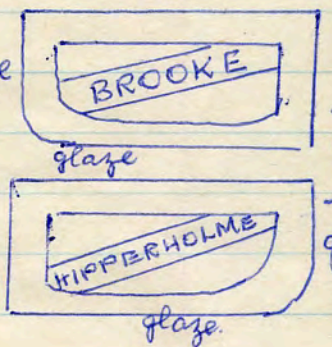 BROOKE
glaze
HIPPERHOLME
glaze.